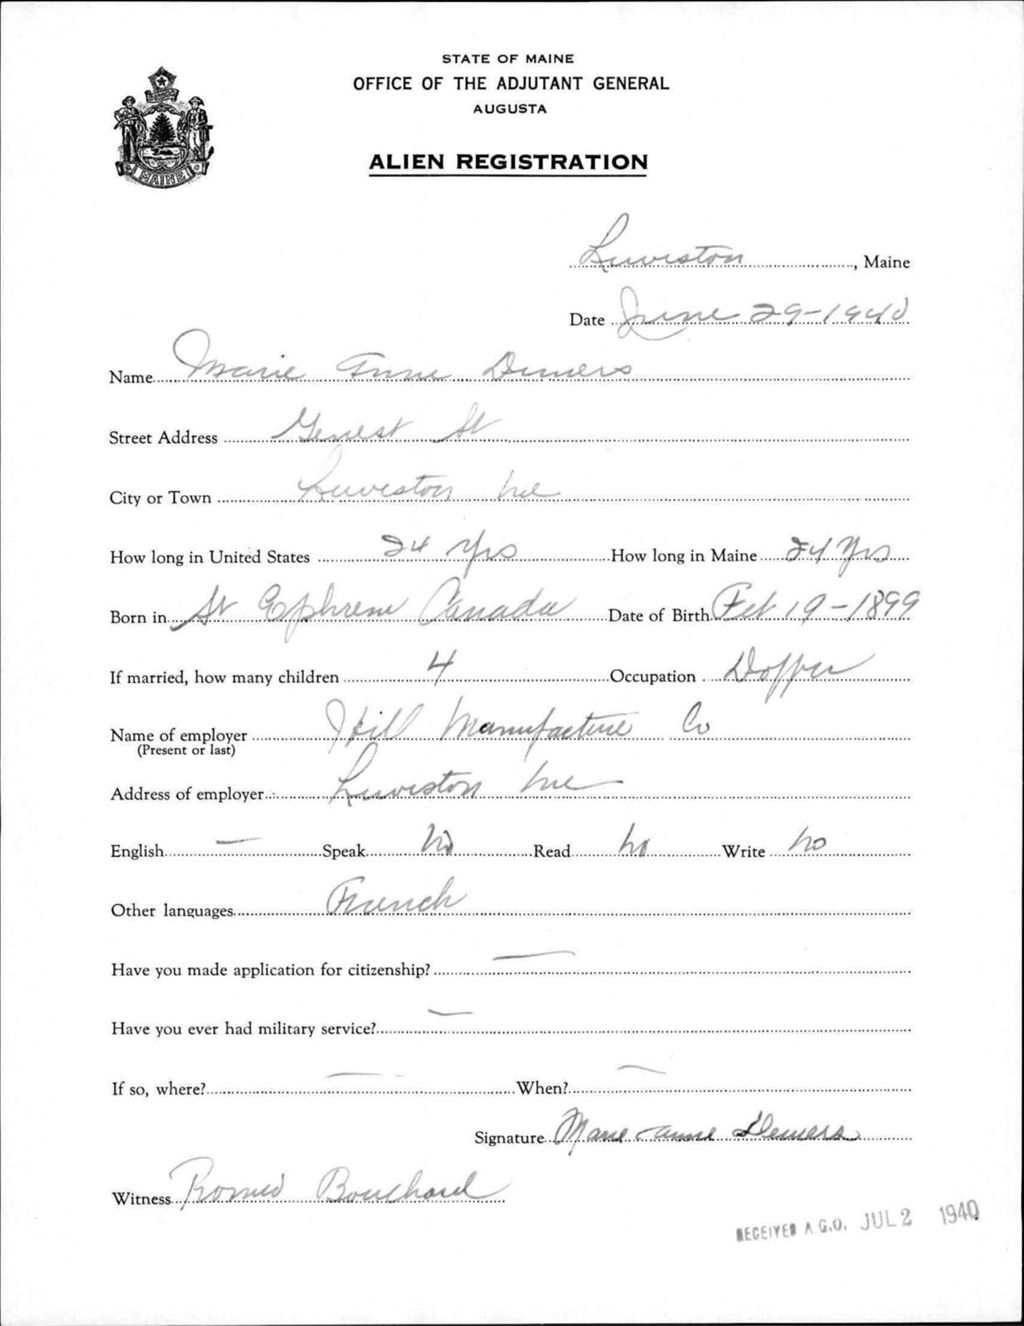 STATE OF MAINE
OFFICE OF THE ADJUTANT GENERAL
AUGUSTA
MAINE
ALIEN REGISTRATION
Lewiston, Maine
Date June 29-1940
Name Marie Anne Demers
Street Address Genest St
City or Town Lewiston Me
How long in United States 24 Yrs How long in Maine 24 Yrs
Born in St Ephrem Canada Date of Birth Feb 19-1899
If married, how many children 4 Occupation Doffer
Name of employer Hill Manufacture Co
(Present or last)
Address of employer Lewiston Me
English — Speak No Read No Write No
Other languages French
Have you made application for citizenship? —
Have you ever had military service? —
If so, where? — When? —
Signature Marie Anne Demers
Witness Romeo Bouchard
RECEIVED A.G.O. JUL 2 1940